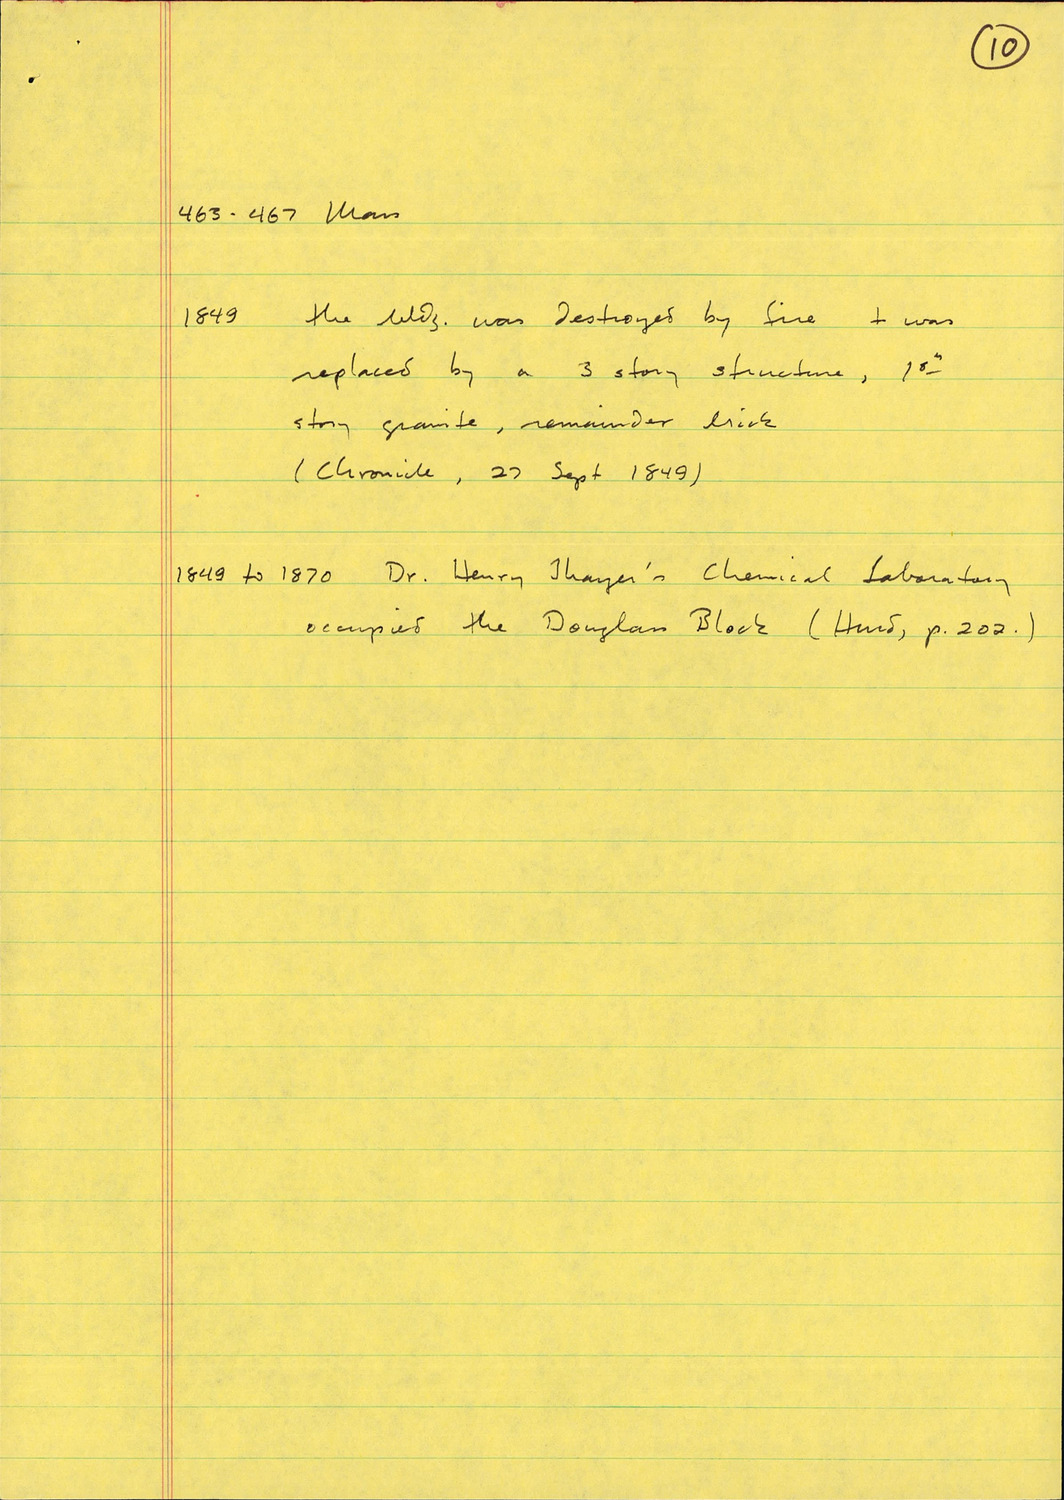 10
463-467 Mass
1849 the bldg. was destroyed by fire + was
replaced by a 3 story structure, 1st
story granite, remainder brick
(Chronicle, 27 Sept 1849)
1849 to 1870 Dr. Henry Thayer's Chemical Laboratory
occupied the Douglass Block (Hurd, p. 202.)